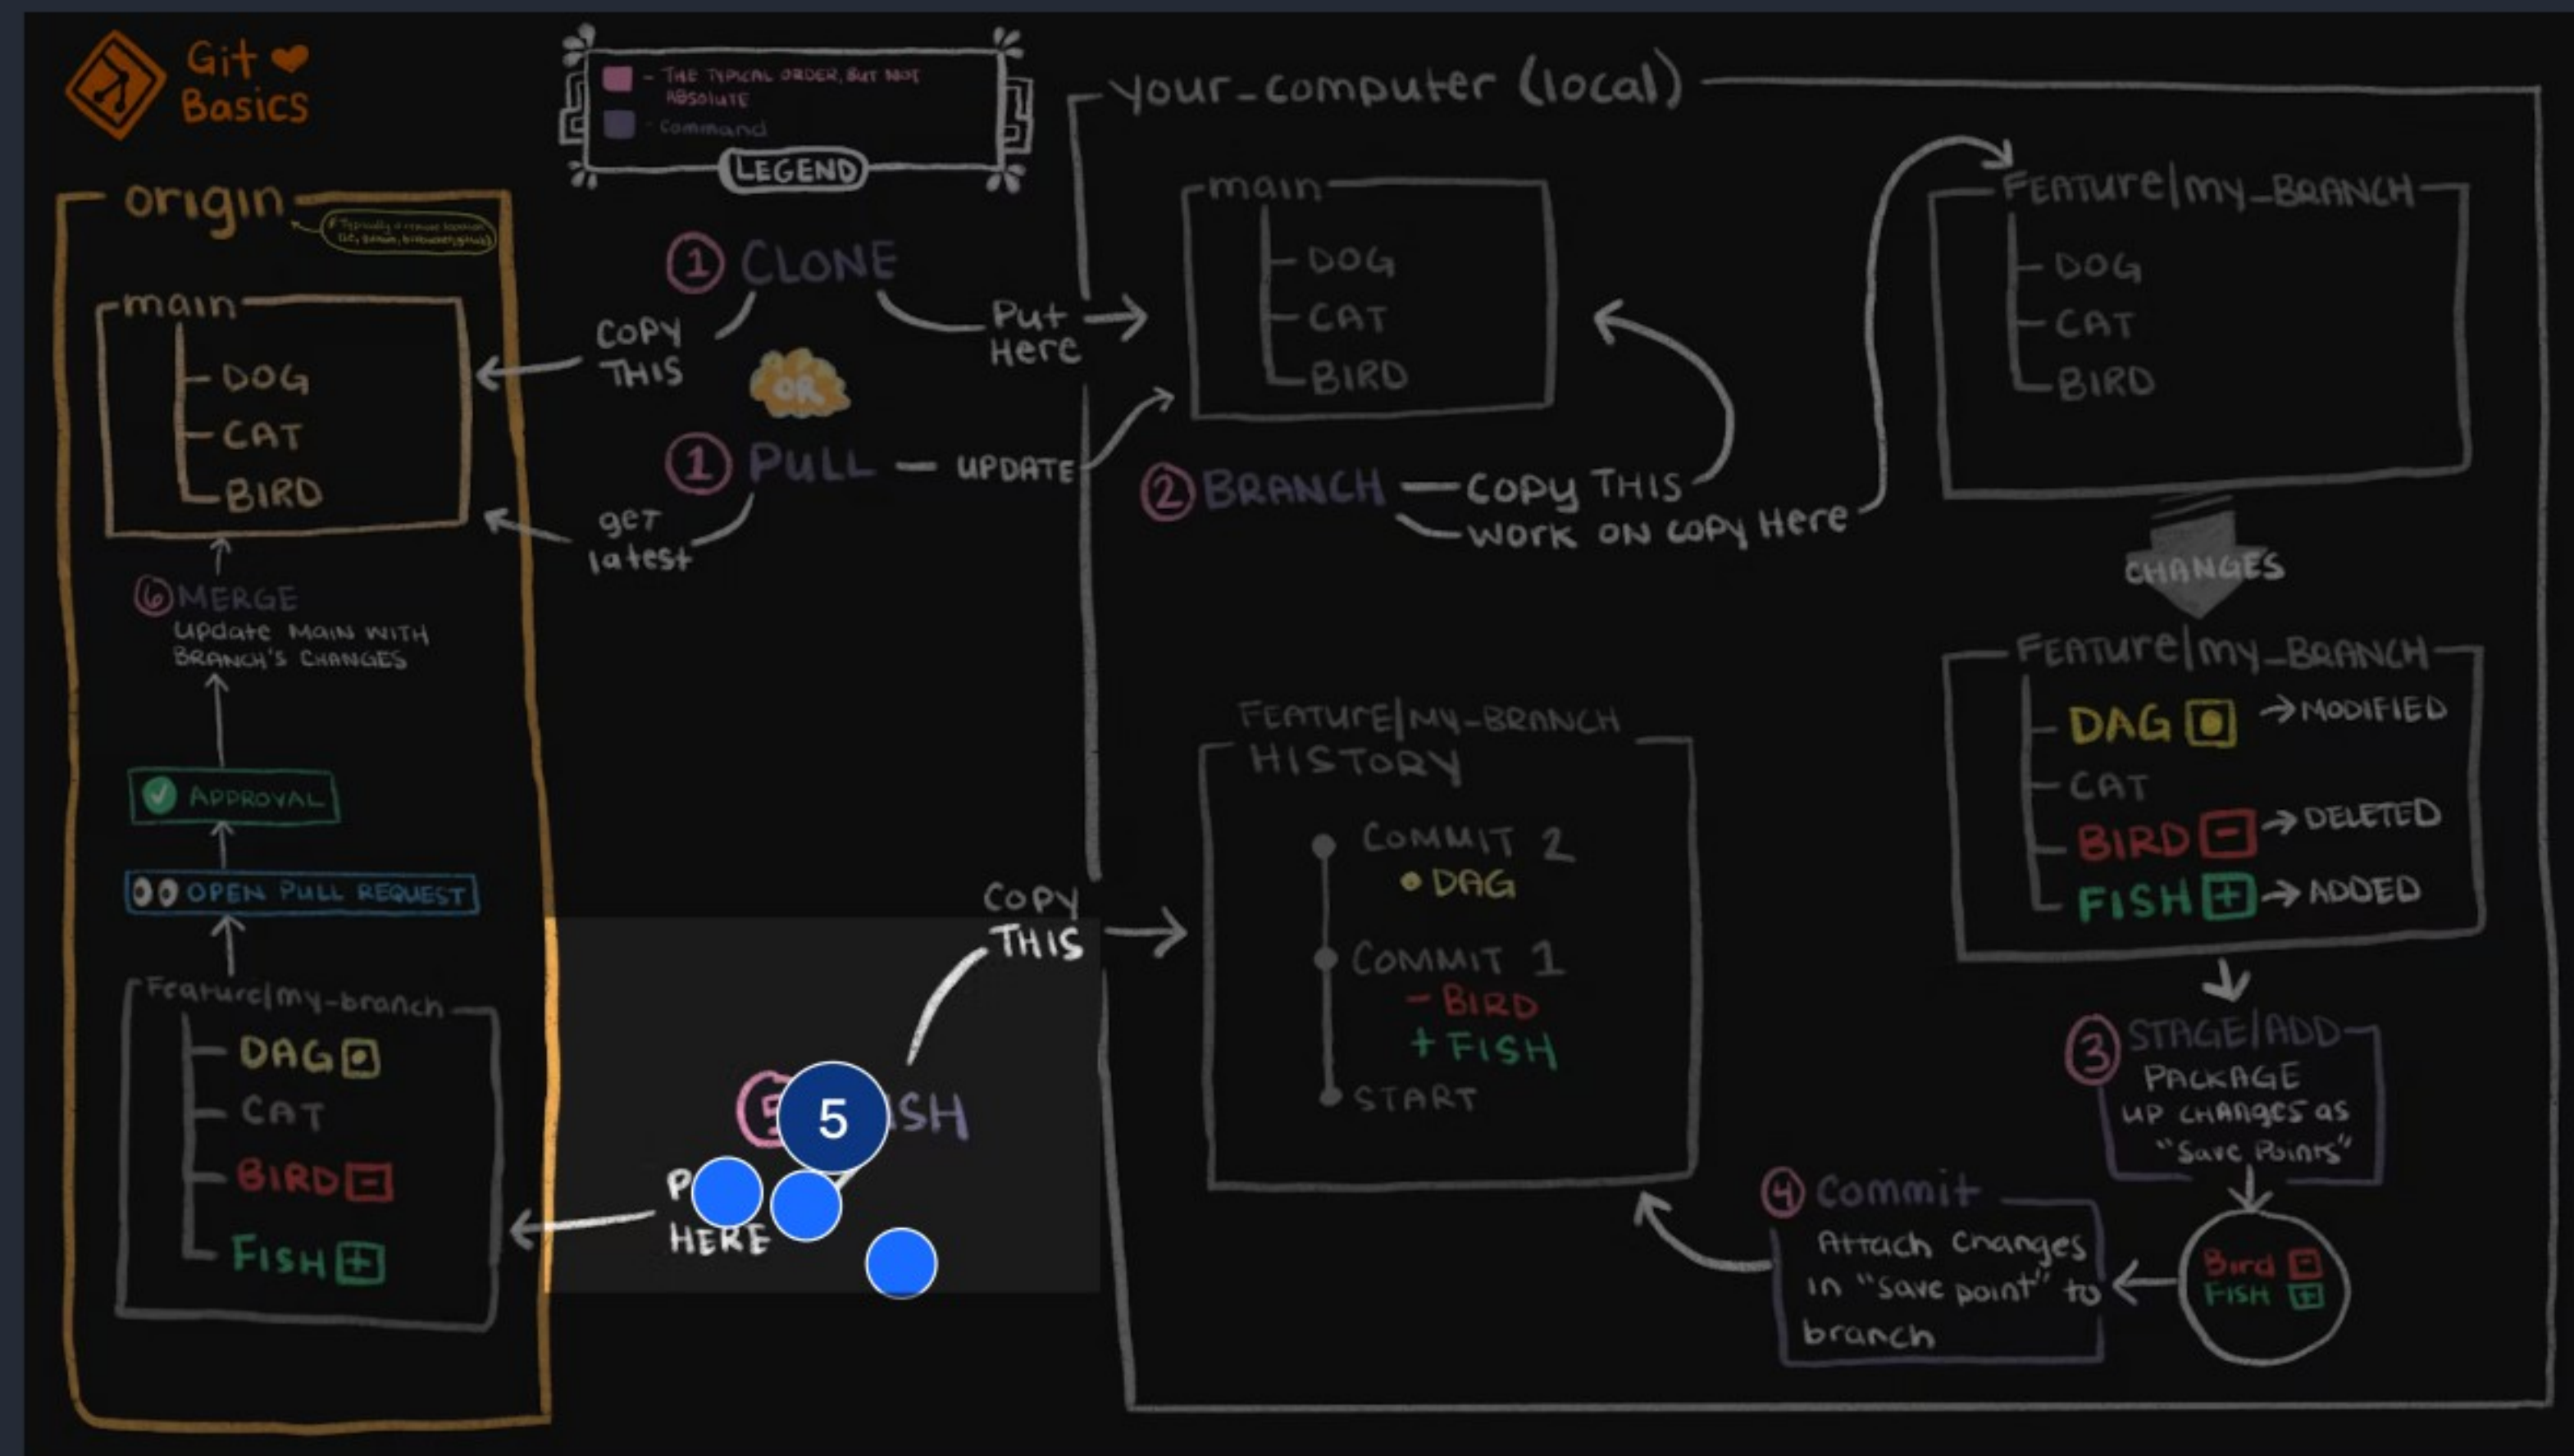 Git ❤
Basics
- THE TYPICAL ORDER, BUT NOT
ABSOLUTE
- Command
LEGEND
origin
main
DOG
CAT
BIRD
6 MERGE
update MAIN WITH
BRANCH'S CHANGES
APPROVAL
OPEN PULL REQUEST
Feature/my-branch
DAG
CAT
BIRD -
FISH +
1 CLONE
COPY
THIS
Put
Here
OR
1 PULL — UPDATE
get
latest
COPY
THIS
5
HERE
your_computer (local)
main
DOG
CAT
BIRD
2 BRANCH — COPY THIS
WORK ON COPY Here
FEATURE/MY_BRANCH
DOG
CAT
BIRD
CHANGES
FEATURE/MY_BRANCH
DAG → MODIFIED
CAT
BIRD - → DELETED
FISH + → ADDED
3 STAGE/ADD
PACKAGE
UP CHANGES as
"Save Points"
Bird -
FISH +
4 Commit
Attach Changes
in "Save point" to
branch
FEATURE/MY-BRANCH
HISTORY
COMMIT 2
• DAG
COMMIT 1
- BIRD
+ FISH
START